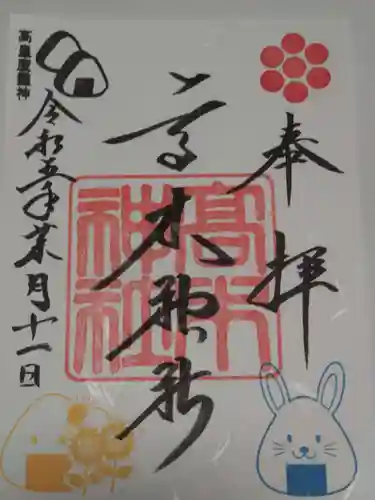 奉拝
髙木神社
髙木神社
高皇産靈神
令和五年葉月十一日